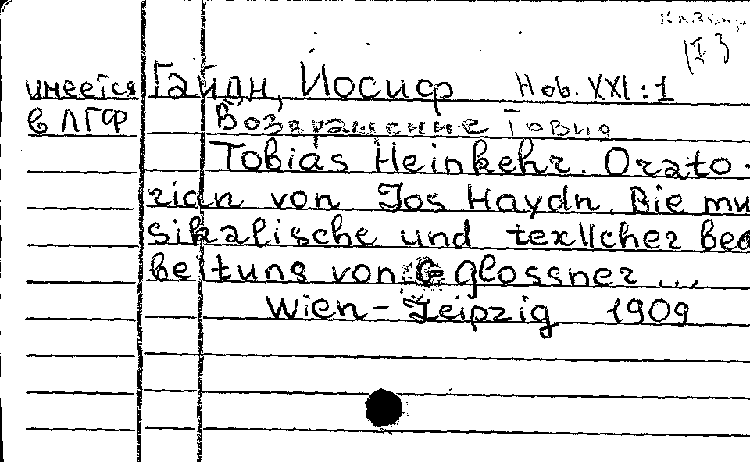 Клавир
(I)
имеется Гайдн, Иосиф Hob. XXI:1
в ЛГФ Возвращение Товия
Tobias Heinkehr. Orato-
rian von Jos Haydn. Bie mu
sikalische und texllcher bea
beitung von G glossner...
Wien-Leipzig 1909